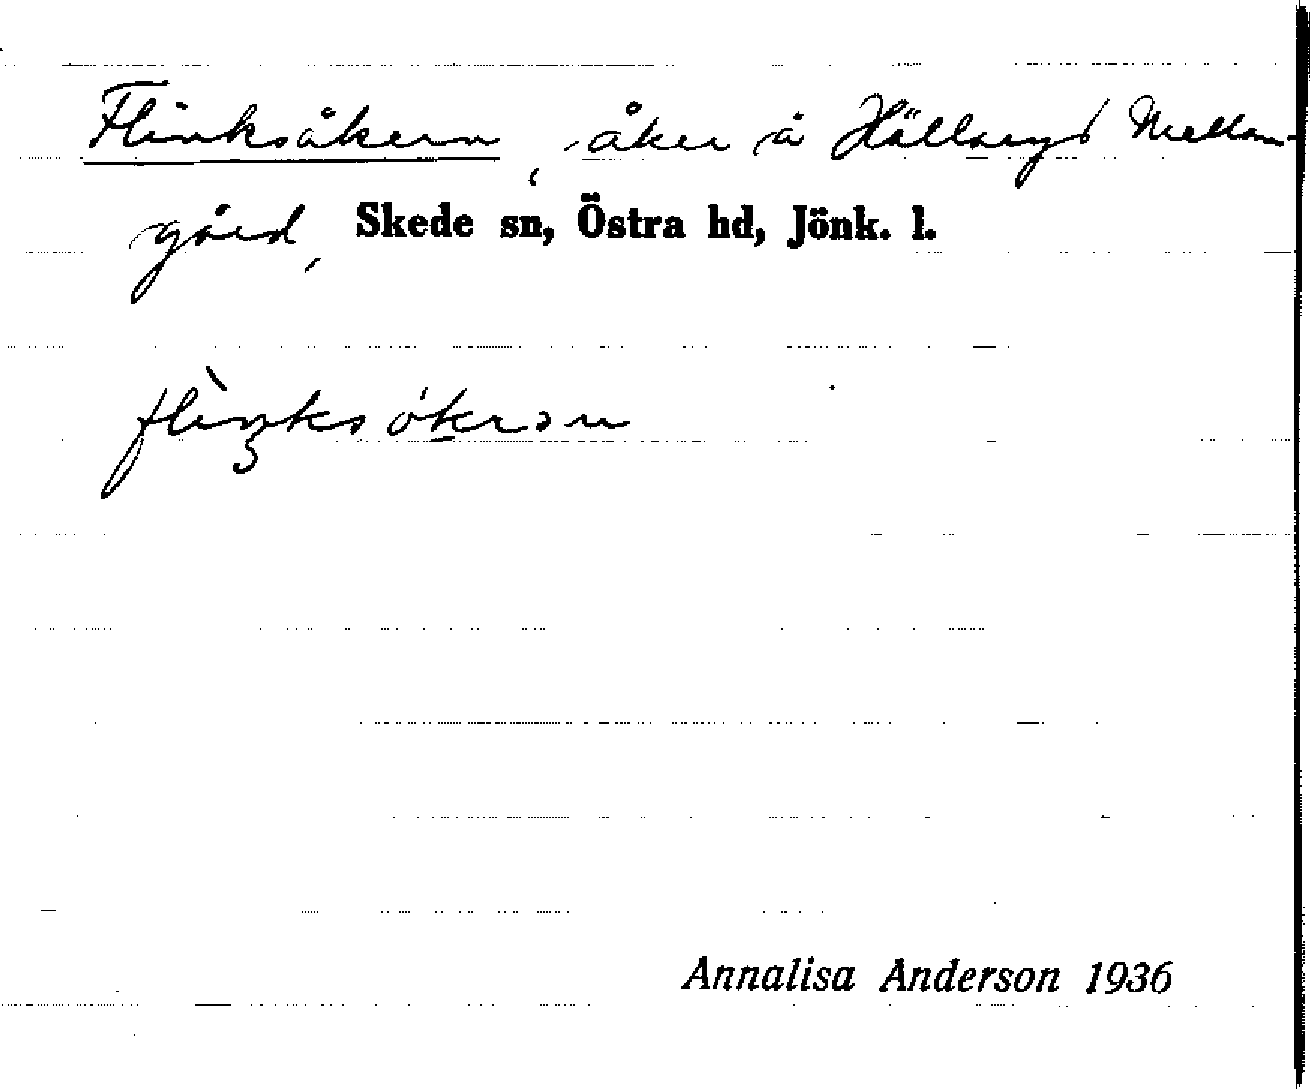 Flinksåkern, åker å Hällaryd Mellan-
gård, Skede sn, Östra hd, Jönk. l.
flìŋksókrən
Annalisa Anderson 1936